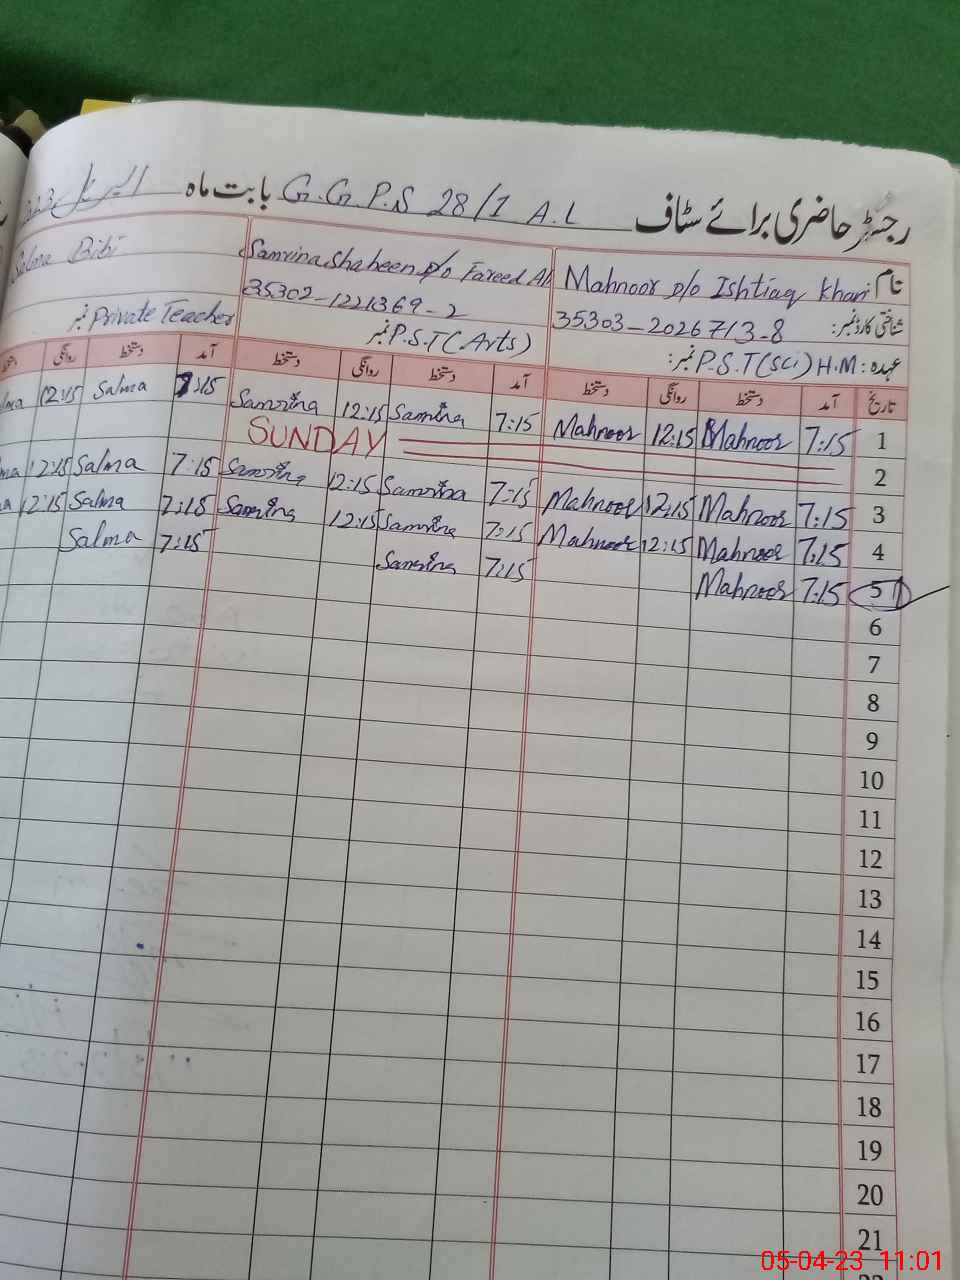 رجسٹر حاضری برائے سٹاف G.G.P.S 28/1 A.L بابت ماہ اپریل
نام Mahnoor D/O Ishtiaq Khan Samrina Shaheen D/O Fareed Ali Salma Bibi
شناختی کارڈ نمبر: 35303-2026713-8 35302-1221369-2
عہدہ: P.S.T(Sci) H.M نمبر: P.S.T(Arts) نمبر Private Teacher نمبر
تاریخ آمد دستخط روانگی دستخط آمد دستخط روانگی دستخط آمد دستخط روانگی دستخط
1 7:15 Mahnoor 12:15 Mahnoor 7:15 Samrina 12:15 Samrina 7:15 Salma 12:15
2 SUNDAY
3 7:15 Mahnoor 12:15 Mahnoor 7:15 Samrina 12:15 Samrina 7:15 Salma 12:15
4 7:15 Mahnoor 12:15 Mahnoor 7:15 Samrina 12:15 Samrina 7:15 Salma 12:15
5 7:15 Mahnoor 7:15 Samrina 7:15 Salma
6
7
8
9
10
11
12
13
14
15
16
17
18
19
20
21
05-04-23 11:01